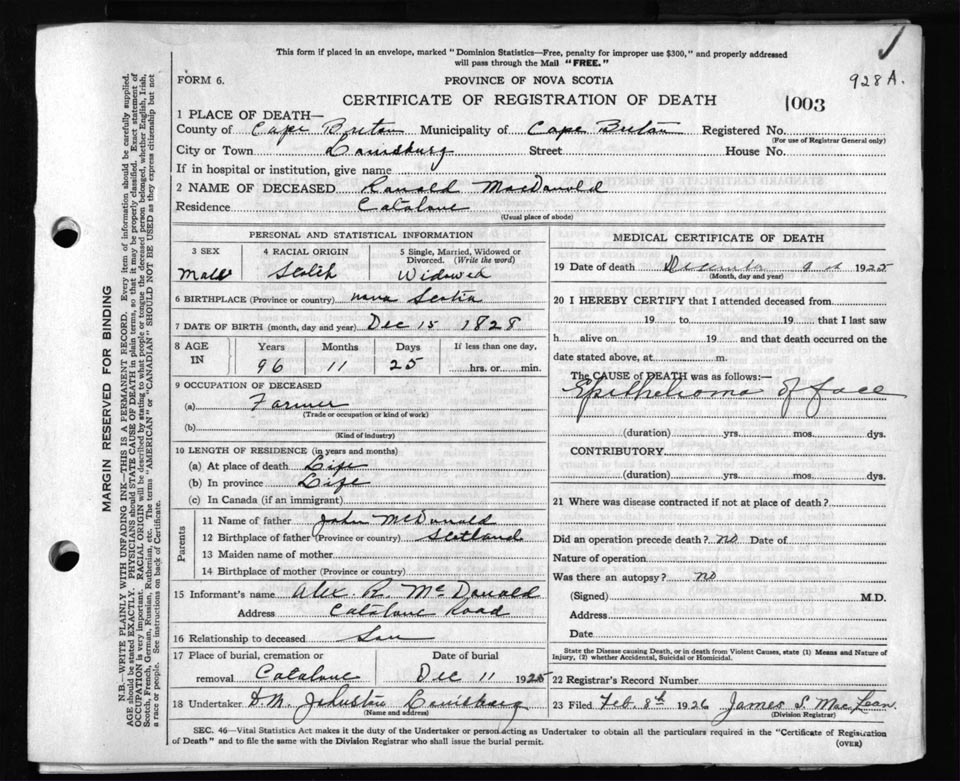 This form if placed in an envelope, marked "Dominion Statistics—Free, penalty for improper use $300," and properly addressed
will pass through the Mail "FREE."
928 A.
FORM 6.
PROVINCE OF NOVA SCOTIA
CERTIFICATE OF REGISTRATION OF DEATH
1003
1 PLACE OF DEATH—
County of Cape Breton Municipality of Cape Breton Registered No.
(For use of Registrar General only)
City or Town Louisburg Street House No.
If in hospital or institution, give name
2 NAME OF DECEASED Ronald MacDonald
Residence Catalone
(Usual place of abode)
PERSONAL AND STATISTICAL INFORMATION
3 SEX 4 RACIAL ORIGIN 5 Single, Married, Widowed or
Divorced. (Write the word)
Male Scotch Widowed
6 BIRTHPLACE (Province or country) Nova Scotia
7 DATE OF BIRTH (month, day and year) Dec 15 1828
8 AGE IN Years Months Days If less than one day,
96 11 25 hrs. or min.
9 OCCUPATION OF DECEASED
(a) Farmer
(Trade or occupation or kind of work)
(b)
(Kind of industry)
10 LENGTH OF RESIDENCE (in years and months)
(a) At place of death Life
(b) In province Life
(c) In Canada (if an immigrant)
Parents
11 Name of father John McDonald
12 Birthplace of father (Province or country) Scotland
13 Maiden name of mother
14 Birthplace of mother (Province or country)
15 Informant's name Alex. R. McDonald
Address Catalone Road
16 Relationship to deceased Son
17 Place of burial, cremation or Date of burial
removal Catalone Dec 11 1925
18 Undertaker D.M. Johnston Louisburg
(Name and address)
MEDICAL CERTIFICATE OF DEATH
19 Date of death December 9th 1925
(Month, day and year)
20 I HEREBY CERTIFY that I attended deceased from
19 to 19 that I last saw
h alive on 19 and that death occurred on the
date stated above, at m.
The CAUSE of DEATH was as follows:—
Epithelioma of face
(duration) yrs. mos. dys.
CONTRIBUTORY
(duration) yrs. mos. dys.
21 Where was disease contracted if not at place of death?
Did an operation precede death? No Date of
Nature of operation
Was there an autopsy? No
(Signed) M.D.
Address
Date
State the Disease causing Death, or in death from Violent Causes, state (1) Means and Nature of
Injury, (2) whether Accidental, Suicidal or Homicidal.
22 Registrar's Record Number
23 Filed Feb. 8th 1926 James S. MacLean
(Division Registrar)
SEC. 46—Vital Statistics Act makes it the duty of the Undertaker or person acting as Undertaker to obtain all the particulars required in the "Certificate of Registration
of Death" and to file the same with the Division Registrar who shall issue the burial permit.
(OVER)
MARGIN RESERVED FOR BINDING
N.B.—WRITE PLAINLY WITH UNFADING INK—THIS IS A PERMANENT RECORD. Every item of information should be carefully supplied.
AGE should be stated EXACTLY. PHYSICIANS should STATE CAUSE OF DEATH in plain terms, so that it may be properly classified. Exact statement of
OCCUPATION is very important. RACIAL ORIGIN will be described by stating to what people or tongue the deceased person belonged, whether English, Irish,
Scotch, French, German, Russian, Ruthenian, etc. The terms "AMERICAN" or "CANADIAN" SHOULD NOT BE USED as they express citizenship but not
a race or people. See instructions on back of Certificate.